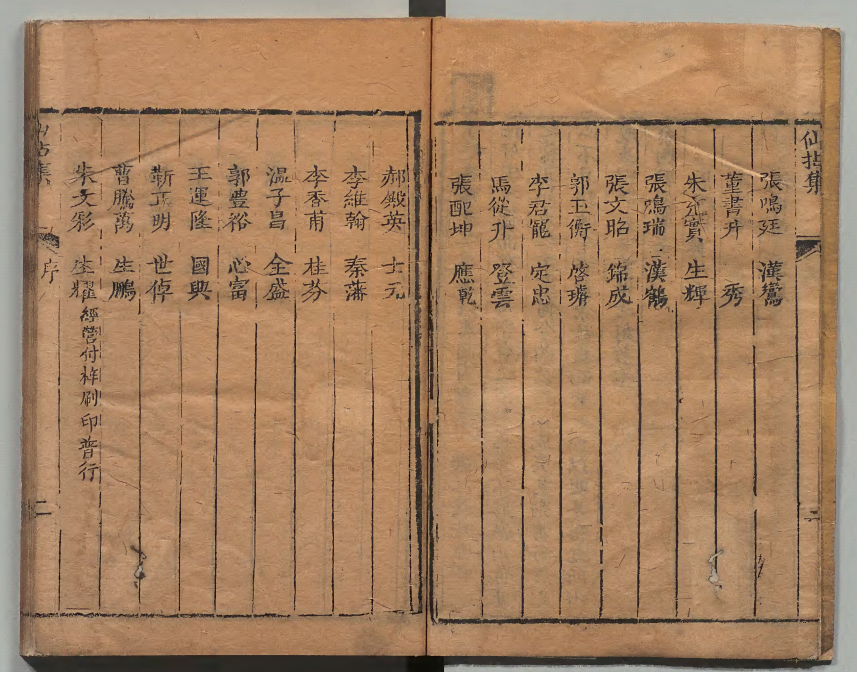 仙拈集
張鳴廷 漢鸞
董書升 秀
朱 實 生輝
張鳴瑞 漢鶴
張文昭 錦成
郭玉衡 啓璿
李君寵 定忠
馬從升 登雲
張配坤 應乾
二
郝殿英 士元
李維翰 秦藩
李香甫 桂芬
温子昌 全盛
郭豊裕 心富
王運隆 國興
靳正明 世倬
曹騰萬 生鵬
朱文彩 生耀 經營付梓刷印普行
仙拈集 序 二